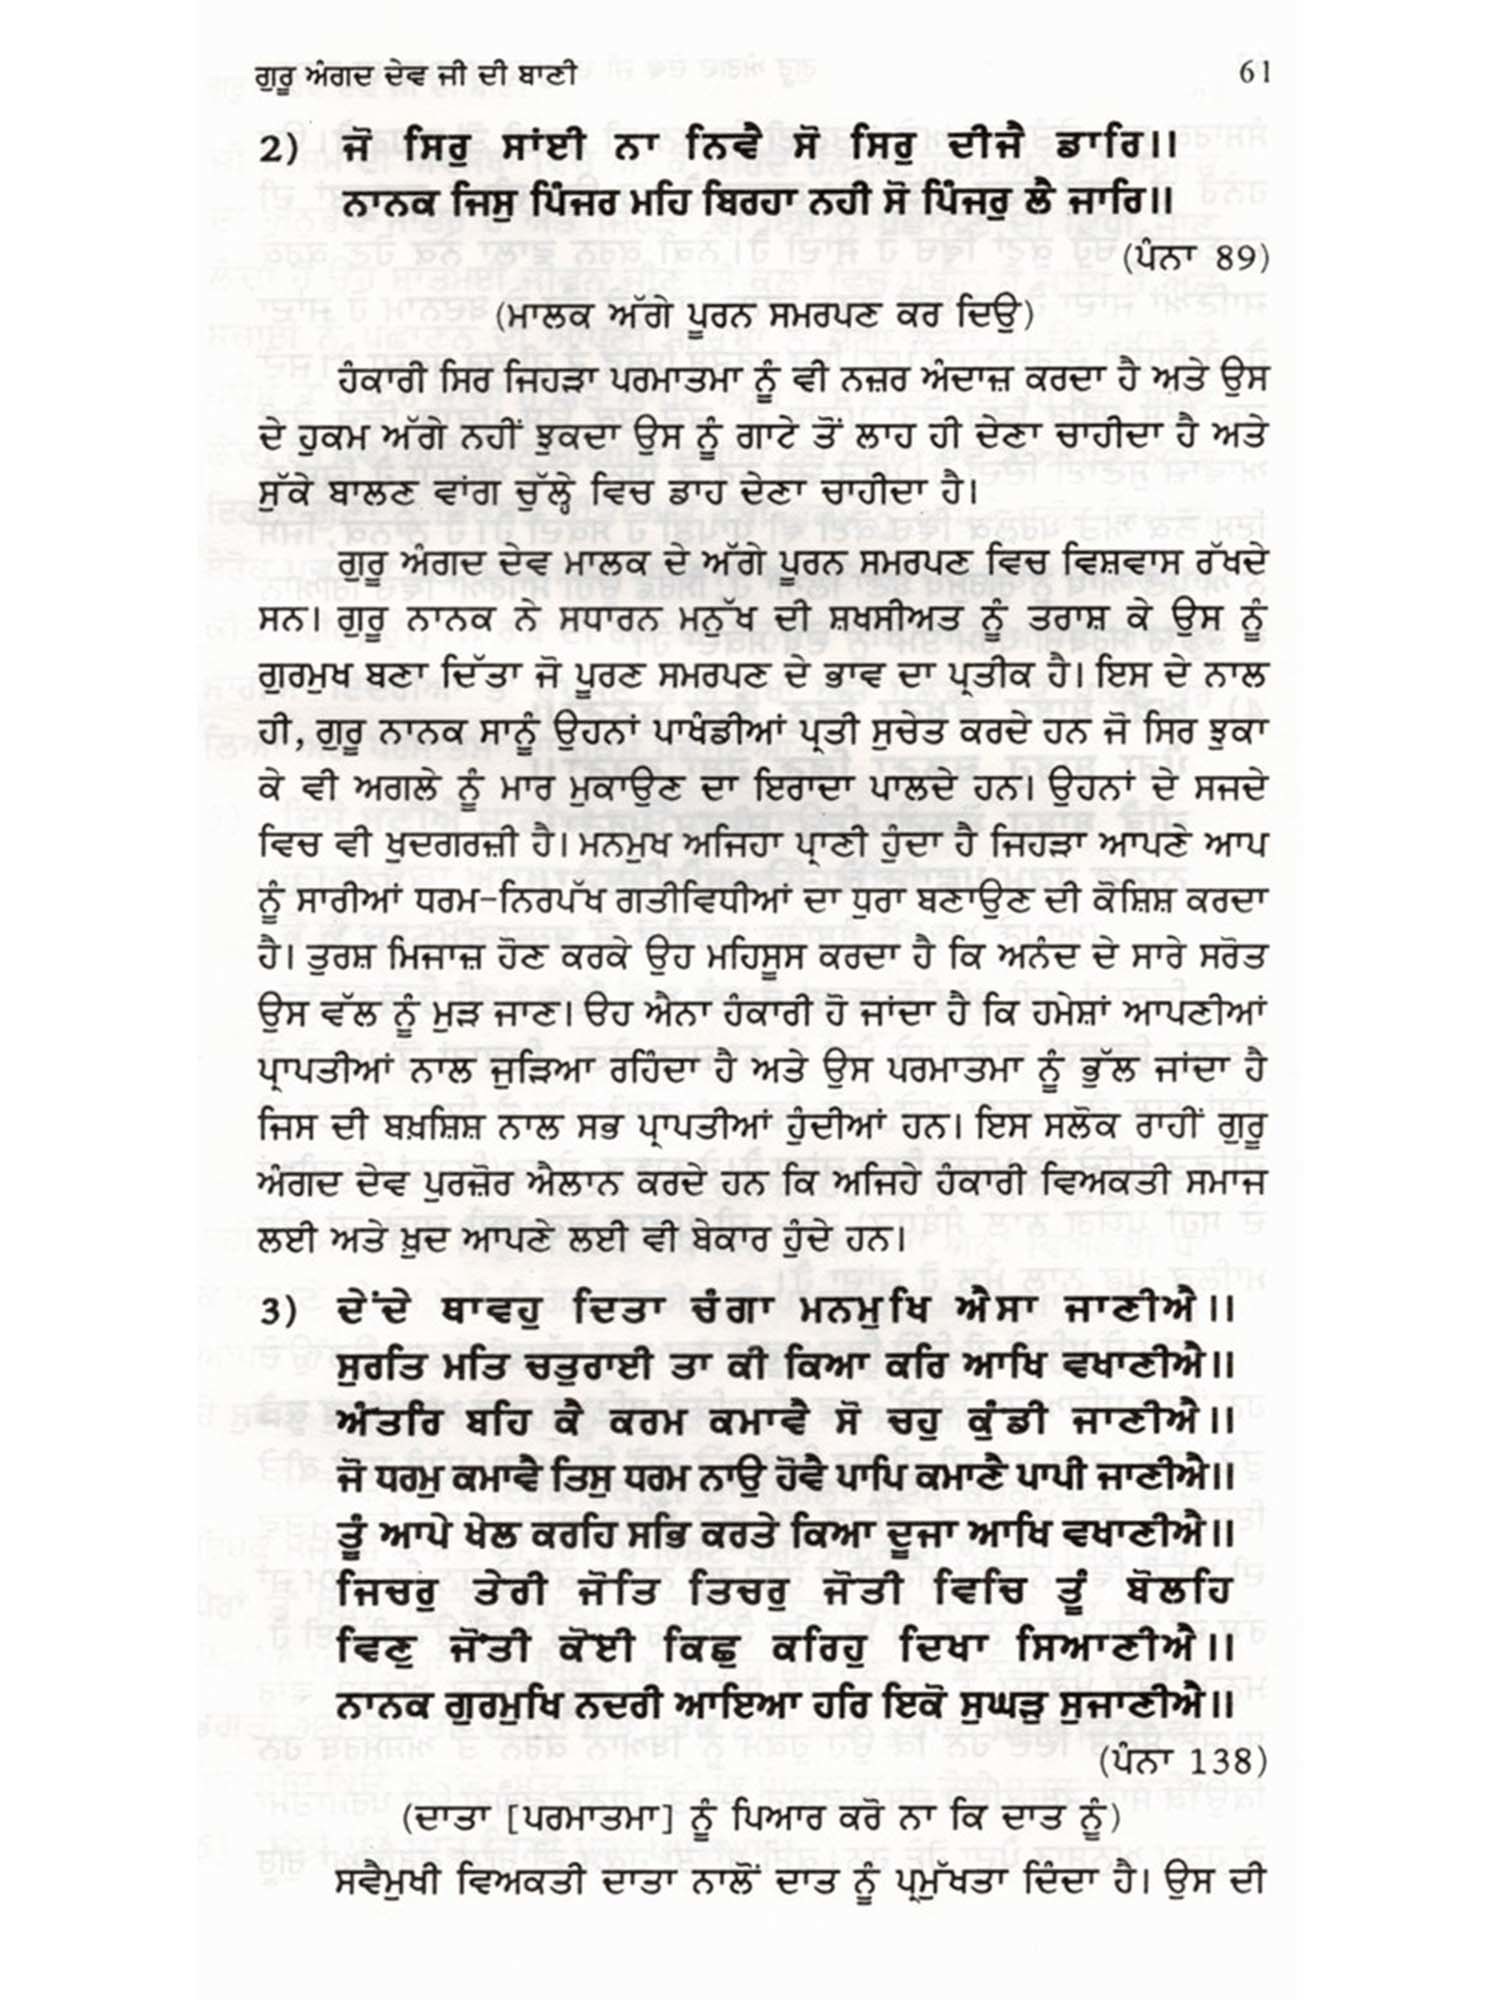 ਗੁਰੂ ਅੰਗਦ ਦੇਵ ਜੀ ਦੀ ਬਾਣੀ 61
2) ਜੋ ਸਿਰੁ ਸਾਂਈ ਨਾ ਨਿਵੈ ਸੋ ਸਿਰੁ ਦੀਜੈ ਡਾਰਿ।।
ਨਾਨਕ ਜਿਸੁ ਪਿੰਜਰ ਮਹਿ ਬਿਰਹਾ ਨਹੀ ਸੋ ਪਿੰਜਰੁ ਲੈ ਜਾਰਿ॥
(ਪੰਨਾ 89)
(ਮਾਲਕ ਅੱਗੇ ਪੂਰਨ ਸਮਰਪਣ ਕਰ ਦਿਉ)
ਹੰਕਾਰੀ ਸਿਰ ਜਿਹੜਾ ਪਰਮਾਤਮਾ ਨੂੰ ਵੀ ਨਜ਼ਰ ਅੰਦਾਜ਼ ਕਰਦਾ ਹੈ ਅਤੇ ਉਸ
ਦੇ ਹੁਕਮ ਅੱਗੇ ਨਹੀਂ ਝੁਕਦਾ ਉਸ ਨੂੰ ਗਾਟੇ ਤੋਂ ਲਾਹ ਹੀ ਦੇਣਾ ਚਾਹੀਦਾ ਹੈ ਅਤੇ
ਸੁੱਕੇ ਬਾਲਣ ਵਾਂਗ ਚੁੱਲ੍ਹੇ ਵਿਚ ਡਾਹ ਦੇਣਾ ਚਾਹੀਦਾ ਹੈ।
ਗੁਰੂ ਅੰਗਦ ਦੇਵ ਮਾਲਕ ਦੇ ਅੱਗੇ ਪੂਰਨ ਸਮਰਪਣ ਵਿਚ ਵਿਸ਼ਵਾਸ ਰੱਖਦੇ
ਸਨ। ਗੁਰੂ ਨਾਨਕ ਨੇ ਸਧਾਰਨ ਮਨੁੱਖ ਦੀ ਸ਼ਖਸੀਅਤ ਨੂੰ ਤਰਾਸ਼ ਕੇ ਉਸ ਨੂੰ
ਗੁਰਮੁਖ ਬਣਾ ਦਿੱਤਾ ਜੋ ਪੂਰਣ ਸਮਰਪਣ ਦੇ ਭਾਵ ਦਾ ਪ੍ਰਤੀਕ ਹੈ। ਇਸ ਦੇ ਨਾਲ
ਹੀ, ਗੁਰੂ ਨਾਨਕ ਸਾਨੂੰ ਉਹਨਾਂ ਪਾਖੰਡੀਆਂ ਪ੍ਰਤੀ ਸੁਚੇਤ ਕਰਦੇ ਹਨ ਜੋ ਸਿਰ ਝੁਕਾ
ਕੇ ਵੀ ਅਗਲੇ ਨੂੰ ਮਾਰ ਮੁਕਾਉਣ ਦਾ ਇਰਾਦਾ ਪਾਲਦੇ ਹਨ। ਉਹਨਾਂ ਦੇ ਸਜਦੇ
ਵਿਚ ਵੀ ਖੁਦਗਰਜ਼ੀ ਹੈ। ਮਨਮੁਖ ਅਜਿਹਾ ਪ੍ਰਾਣੀ ਹੁੰਦਾ ਹੈ ਜਿਹੜਾ ਆਪਣੇ ਆਪ
ਨੂੰ ਸਾਰੀਆਂ ਧਰਮ-ਨਿਰਪੱਖ ਗਤੀਵਿਧੀਆਂ ਦਾ ਧੁਰਾ ਬਣਾਉਣ ਦੀ ਕੋਸ਼ਿਸ਼ ਕਰਦਾ
ਹੈ। ਤੁਰਸ਼ ਮਿਜਾਜ਼ ਹੋਣ ਕਰਕੇ ਉਹ ਮਹਿਸੂਸ ਕਰਦਾ ਹੈ ਕਿ ਅਨੰਦ ਦੇ ਸਾਰੇ ਸਰੋਤ
ਉਸ ਵੱਲ ਨੂੰ ਮੁੜ ਜਾਣ। ੳਹ ਐਨਾ ਹੰਕਾਰੀ ਹੋ ਜਾਂਦਾ ਹੈ ਕਿ ਹਮੇਸ਼ਾਂ ਆਪਣੀਆਂ
ਪ੍ਰਾਪਤੀਆਂ ਨਾਲ ਜੁੜਿਆ ਰਹਿੰਦਾ ਹੈ ਅਤੇ ਉਸ ਪਰਮਾਤਮਾ ਨੂੰ ਭੁੱਲ ਜਾਂਦਾ ਹੈ
ਜਿਸ ਦੀ ਬਖ਼ਸ਼ਿਸ਼ ਨਾਲ ਸਭ ਪ੍ਰਾਪਤੀਆਂ ਹੁੰਦੀਆਂ ਹਨ। ਇਸ ਸਲੋਕ ਰਾਹੀਂ ਗੁਰੂ
ਅੰਗਦ ਦੇਵ ਪੁਰਜ਼ੋਰ ਐਲਾਨ ਕਰਦੇ ਹਨ ਕਿ ਅਜਿਹੇ ਹੰਕਾਰੀ ਵਿਅਕਤੀ ਸਮਾਜ
ਲਈ ਅਤੇ ਖ਼ੁਦ ਆਪਣੇ ਲਈ ਵੀ ਬੇਕਾਰ ਹੁੰਦੇ ਹਨ।
3) ਦੇਂਦੇ ਥਾਵਹੁ ਦਿਤਾ ਚੰਗਾ ਮਨਮੁਖਿ ਐਸਾ ਜਾਣੀਐ।।
ਸੁਰਤਿ ਮਤਿ ਚਤੁਰਾਈ ਤਾ ਕੀ ਕਿਆ ਕਰਿ ਆਖਿ ਵਖਾਣੀਐ॥
ਅੰਤਰਿ ਬਹਿ ਕੈ ਕਰਮ ਕਮਾਵੈ ਸੋ ਚਹੁ ਕੁੰਡੀ ਜਾਣੀਐ।।
ਜੋ ਧਰਮੁ ਕਮਾਵੈ ਤਿਸੁ ਧਰਮ ਨਾਉ ਹੋਵੈ ਪਾਪਿ ਕਮਾਣੈ ਪਾਪੀ ਜਾਣੀਐ॥
ਤੂੰ ਆਪੇ ਖੇਲ ਕਰਹਿ ਸਭਿ ਕਰਤੇ ਕਿਆ ਦੂਜਾ ਆਖਿ ਵਖਾਣੀਐ॥
ਜਿਚਰੁ ਤੇਰੀ ਜੋਤਿ ਤਿਚਰੁ ਜੋਤੀ ਵਿਚਿ ਤੂੰ ਬੋਲਹਿ
ਵਿਣੁ ਜੋਂਤੀ ਕੋਈ ਕਿਛੁ ਕਰਿਹੁ ਦਿਖਾ ਸਿਆਣੀਐ।।
ਨਾਨਕ ਗੁਰਮੁਖਿ ਨਦਰੀ ਆਇਆ ਹਰਿ ਇਕੋ ਸੁਘੜੁ ਸੁਜਾਣੀਐ॥
(ਪੰਨਾ 138)
(ਦਾਤਾ [ਪਰਮਾਤਮਾ] ਨੂੰ ਪਿਆਰ ਕਰੋ ਨਾ ਕਿ ਦਾਤ ਨੂੰ)
ਸਵੈਮੁਖੀ ਵਿਅਕਤੀ ਦਾਤਾ ਨਾਲੋਂ ਦਾਤ ਨੂੰ ਪ੍ਰਮੁੱਖਤਾ ਦਿੰਦਾ ਹੈ। ਉਸ ਦੀ